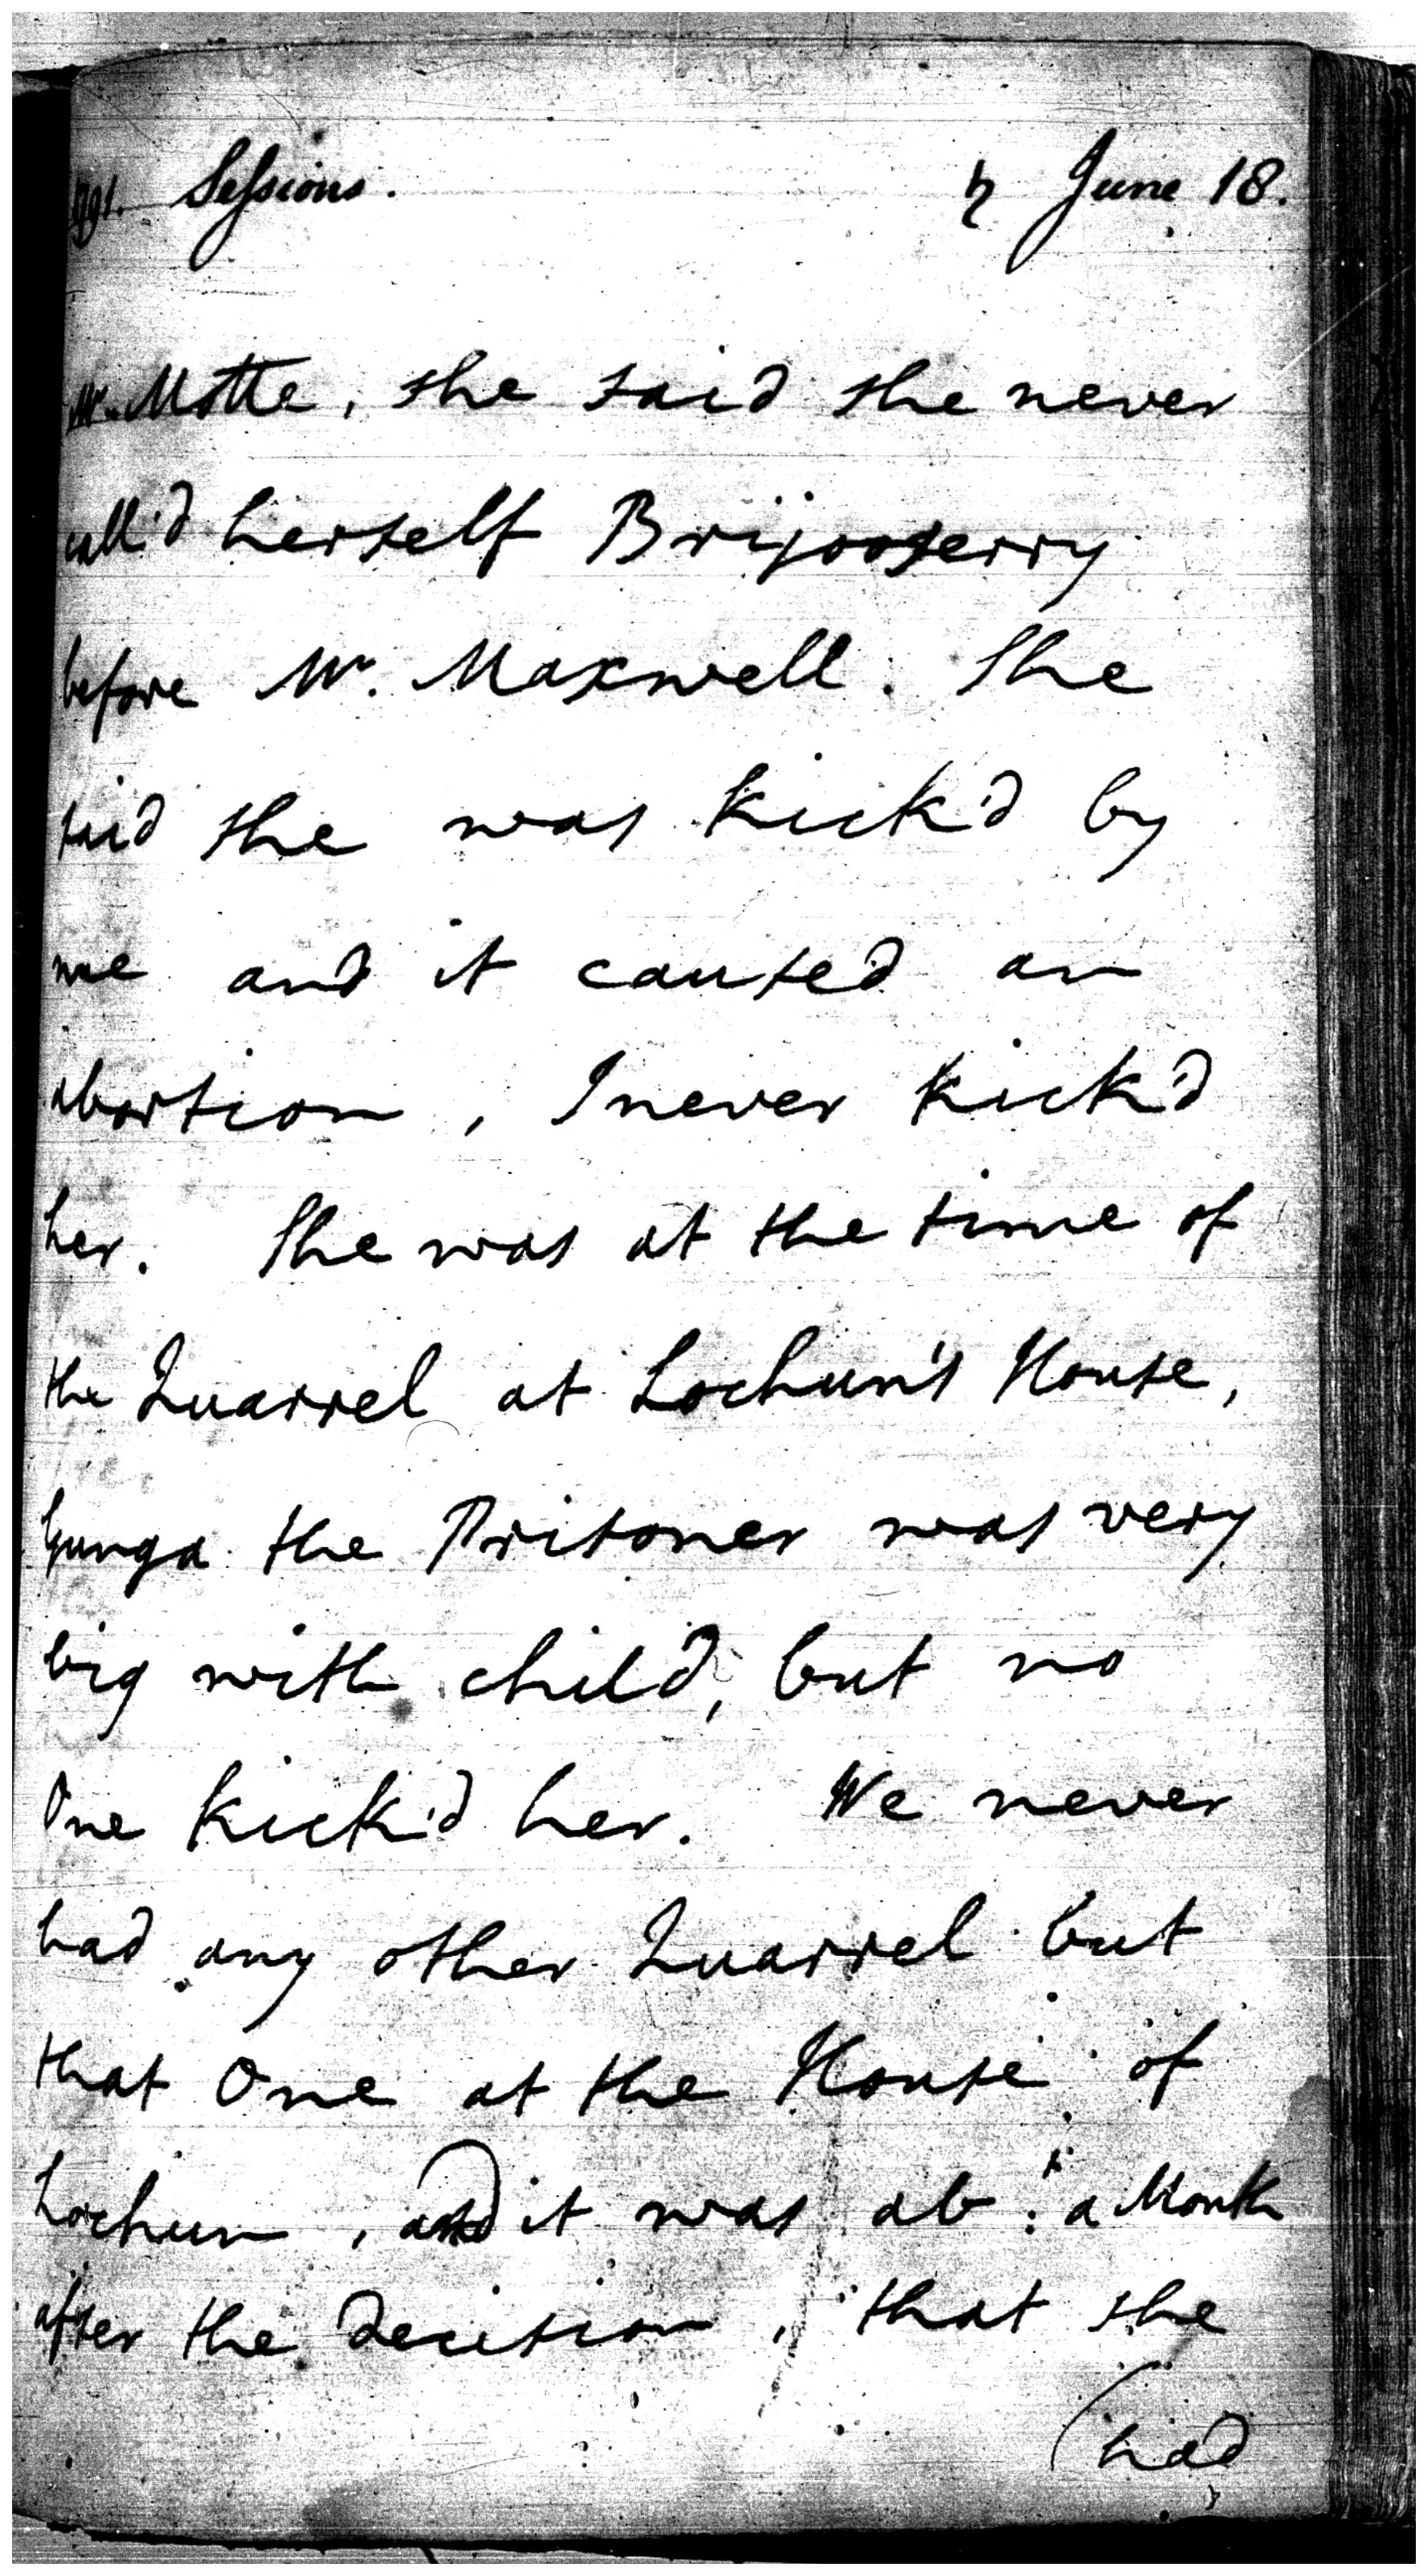 1791. Sessions. ♄ June 18.
Mr. Motte, she said she never
call'd herself Brijooserry
before Mr. Maxwell. She
said she was kick'd by
me and it caused an
abortion, I never kick'd
her. She was at the time of
the Quarrel at Lochun's House,
Gunga the Prisoner was very
big with child, but no
One kick'd her. We never
had any other Quarrel but
that One at the House of
Lochun, and it was abt. a Month
after the Decision, that she
(had